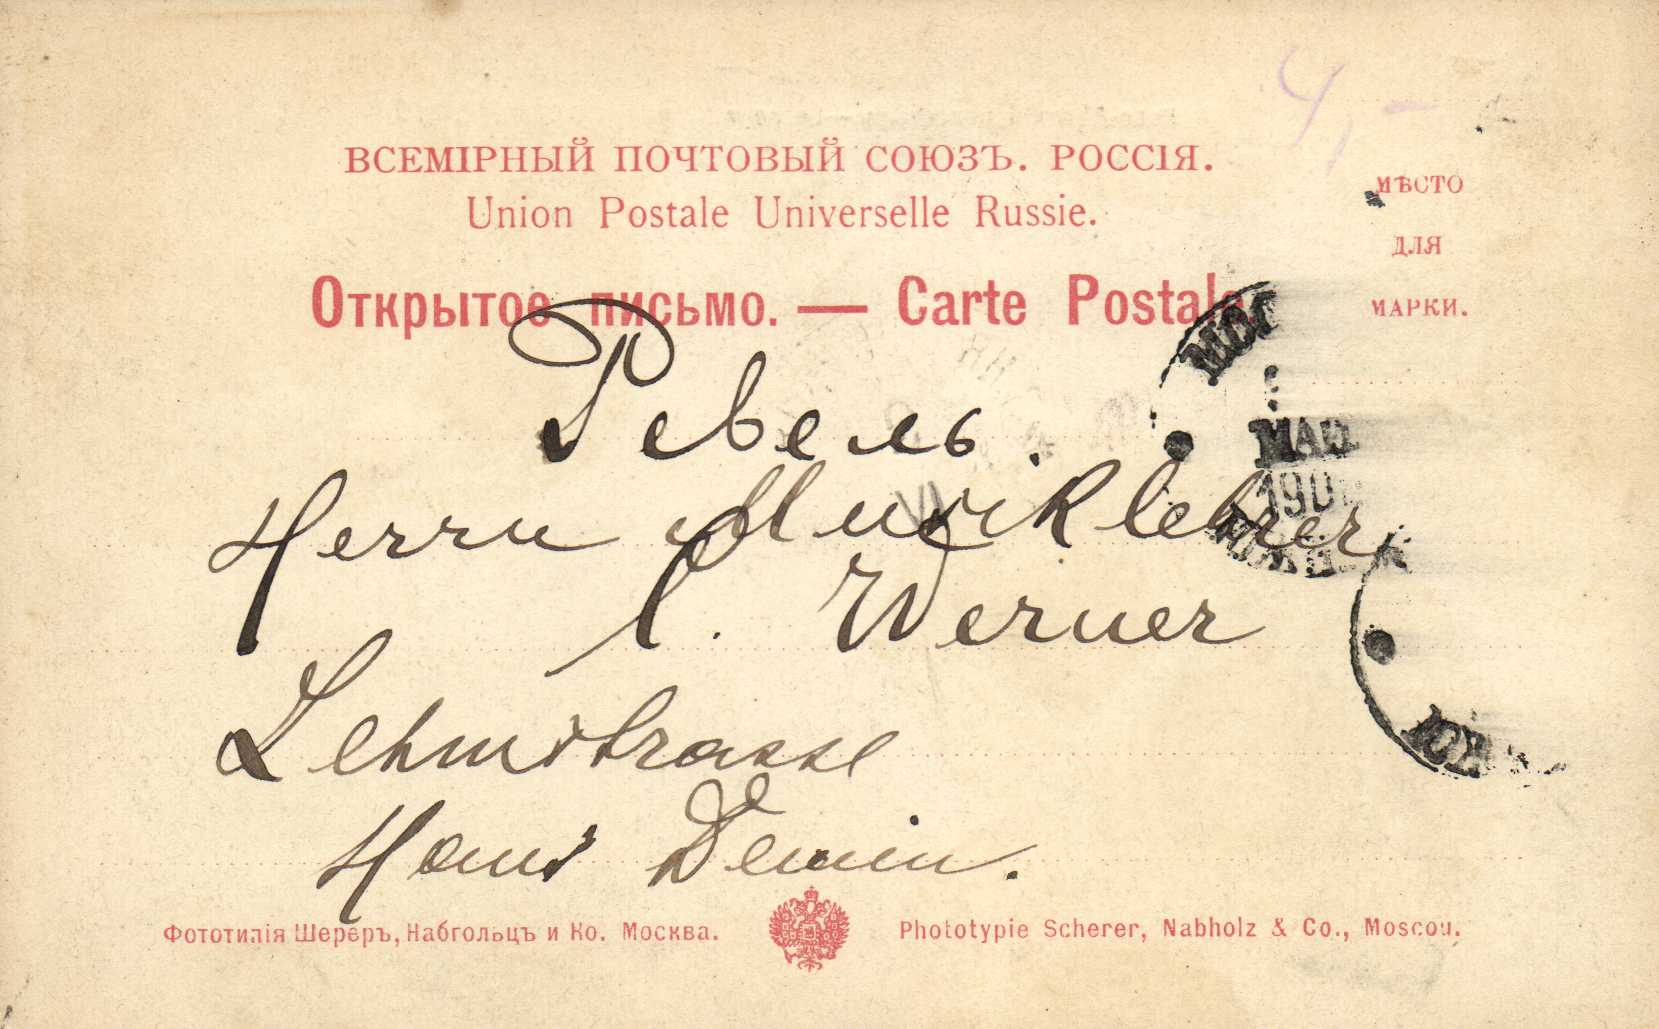 4,-
ВСЕМІРНЫЙ ПОЧТОВЫЙ СОЮЗЪ. РОССІЯ.
Union Postale Universelle Russie.
МѢСТО
ДЛЯ
МАРКИ.
Открытое письмо. — Carte Postale.
Ревель.
Herrn Musiklehrer
C. Werner
Lehmstrasse
Haus Demin.
МОС
МАР
190
Фототипія Шереръ, Набгольцъ и Ко. Москва.
Phototypie Scherer, Nabholz & Co., Moscou.